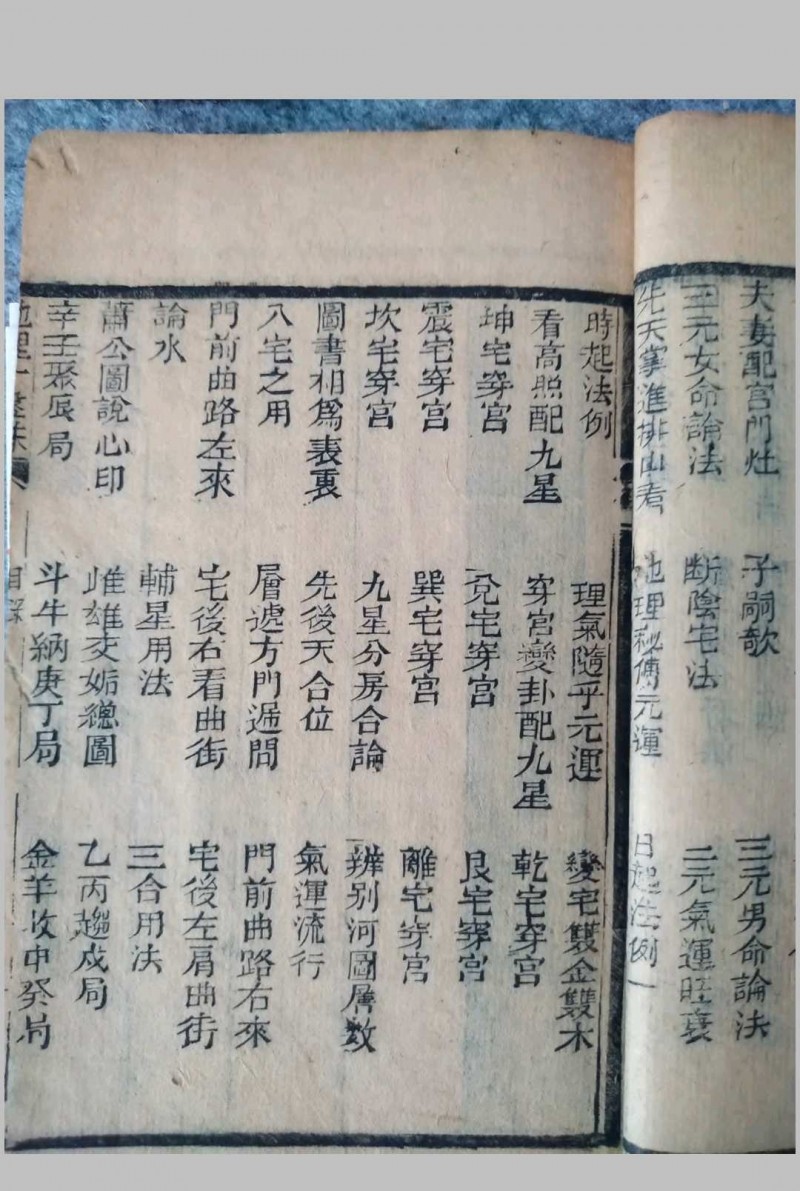 夫妻配宮門灶 子嗣歌 三元男命論法
三元女命論法 斷陰宅法 三元氣運旺衰
先天掌進排山看 地理秘傳元運 日起法例
時起法例 理氣隨乎元運 變宅雙金雙木
看高照配九星 穿宮變卦配九星 乾宅穿宮
坤宅穿宮 兌宅穿宮 艮宅穿宮
震宅穿宮 巽宅穿宮 離宅穿宮
坎宅穿宮 九星分房合論 辨别河圖層数
圖書相為表裏 先後天合位 氣運流行
八宅之用 層遞方門遁問 門前曲路右來
門前曲路左來 宅後右看曲街 宅後左肩曲街
論水 輔星用法 三合用法
蕭公圖說心印 雌雄交姤總圖 乙丙趨戍局
辛壬聚辰局 斗牛納庚丁局 金羊收申癸局